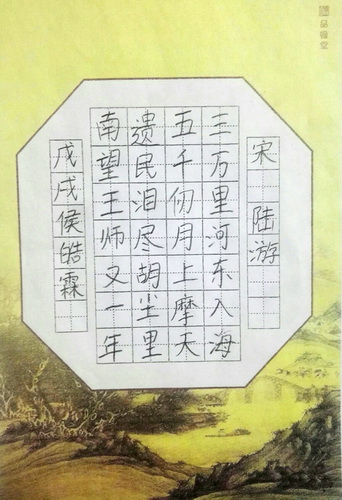 宋 陆游
三万里河东入海
五千仞月上摩天
遗民泪尽胡尘里
南望王师又一年
戊戌侯皓霖